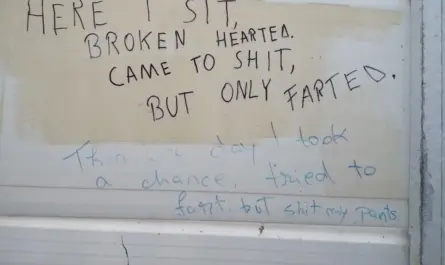 HERE I SIT,
BROKEN HEARTED.
CAME TO SHIT,
BUT ONLY FARTED.
day I took
a chance, tried to
fart, but shit my pants